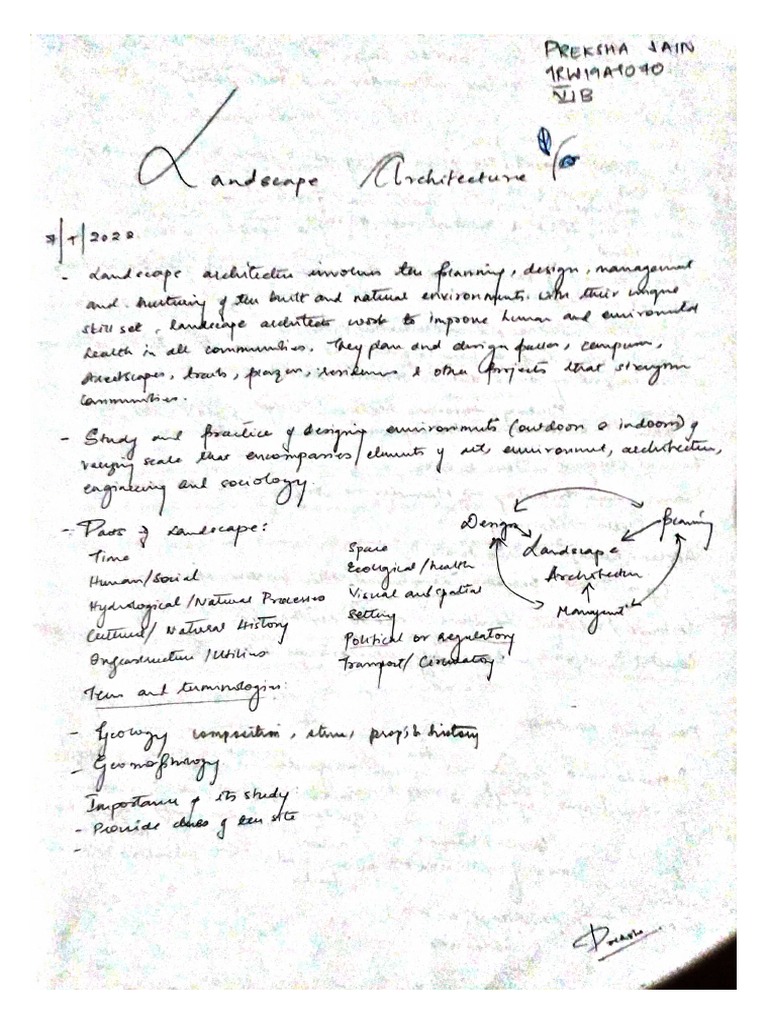 PREKSHA JAIN
1RW19AT070
VI B
Landscape Architecture
- Landscape architecture involves the planning, design, management
and nurturing of the built and natural environments. With their unique
skill set, landscape architects work to improve human and environmental
health in all communities. They plan and design parks, campuses,
streetscapes, trails, plazas, residences & other projects that strengthen
communities.
- Study and practice of designing environments (outdoors & indoors) of
varying scale that encompasses elements of art, environment, architecture,
engineering and sociology.
- Landscape:
Design
Planning
Landscape
Architecture
Management
Time
Human/Social
Hydrological/Natural Processes
Cultural/Natural History
Infrastructure/Utilities
Space
Ecological/health
Visual and spatial
Setting
Political or regulatory
Transport/Circulatory
and terminologies:
- Geology composition, props & history
- Geomorphology
Importance of its study:
- Provide clues of the site
-
Preksha